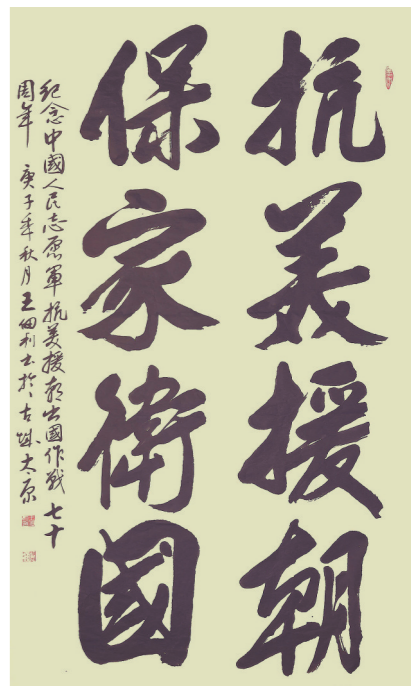 抗美援朝
保家衛國
紀念中國人民志愿軍抗美援朝出國作戰七十
周年 庚子年秋月王細利书於古城太原